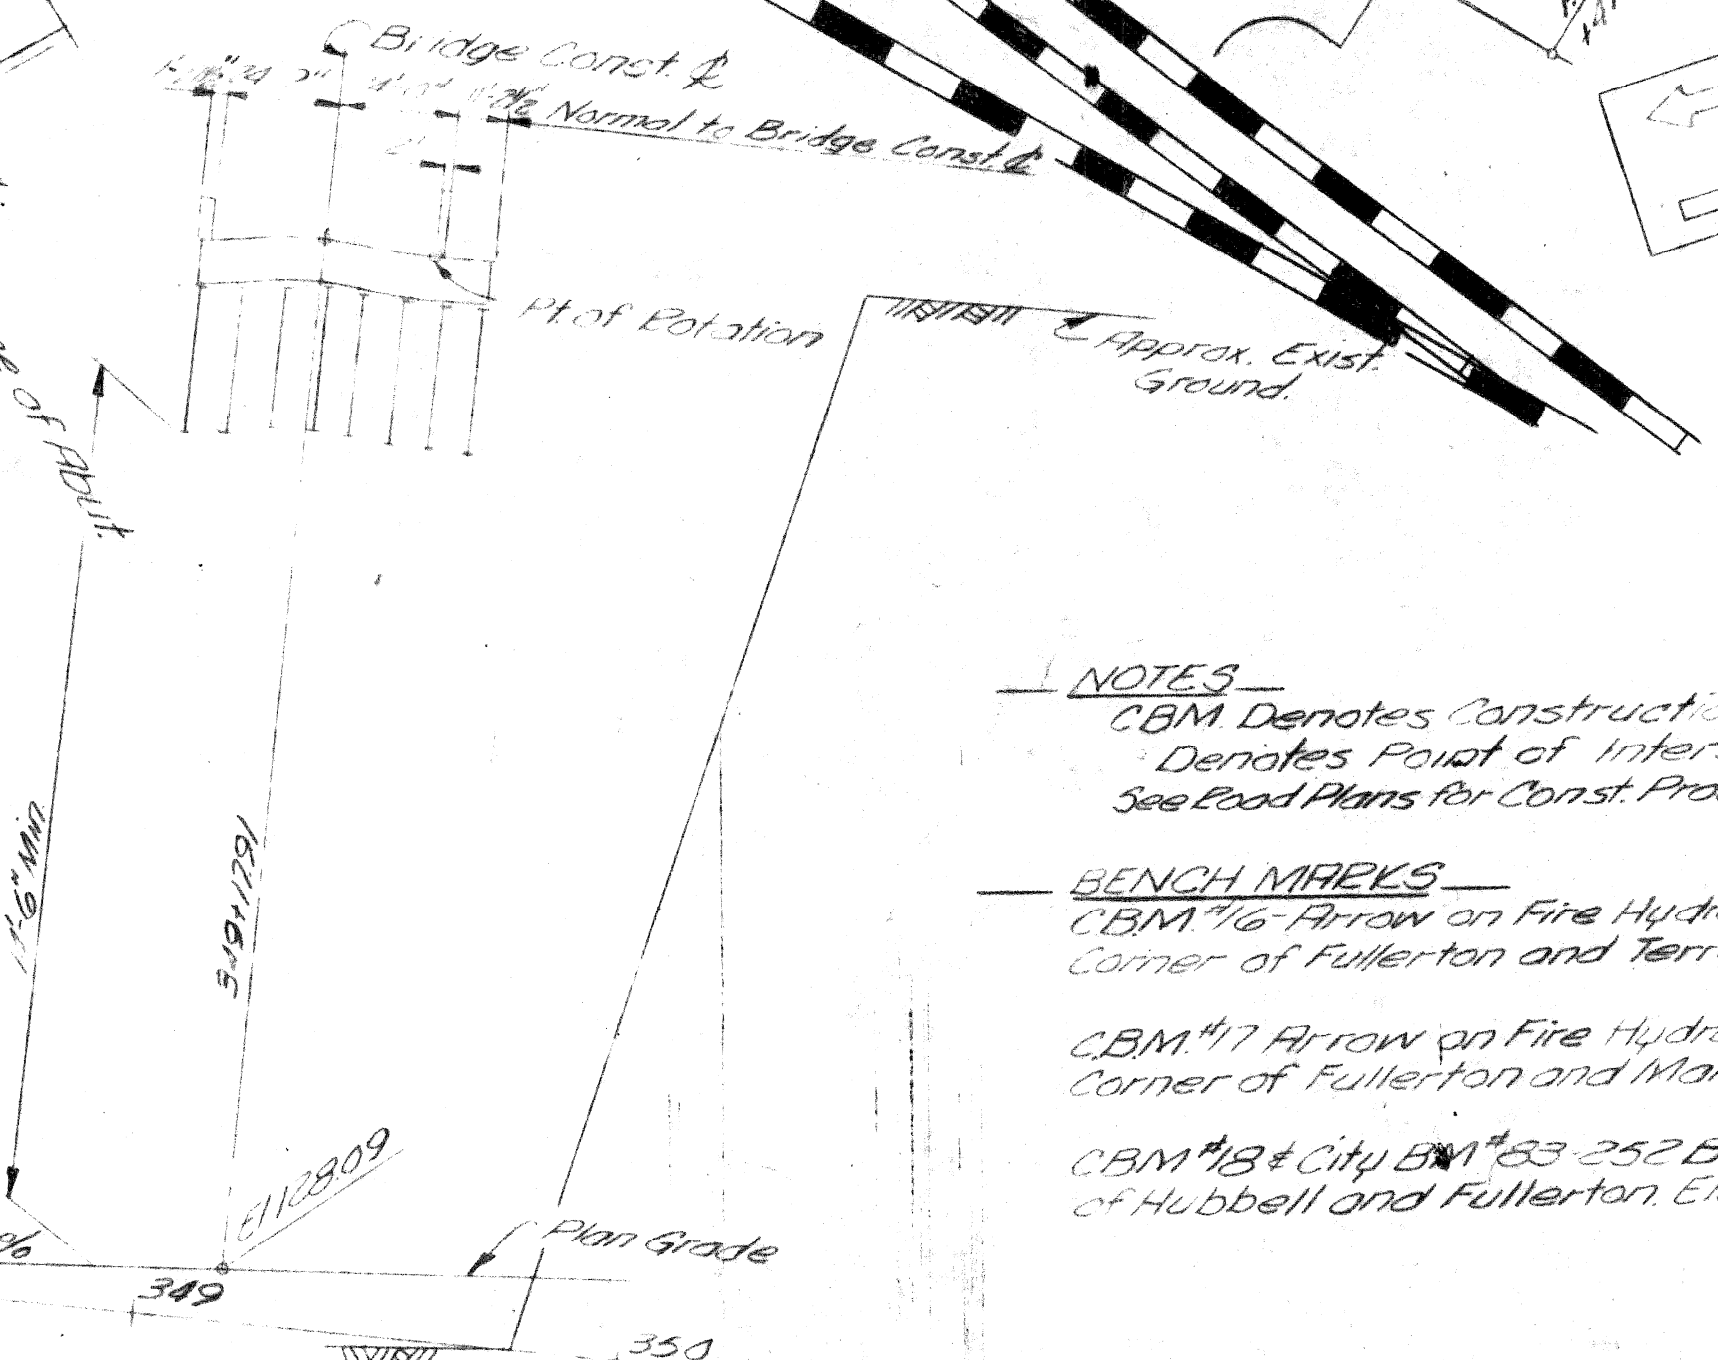 Bridge Const. ℄
Normal to Bridge Const. ℄
Pt. of Rotation
Approx. Exist.
Ground.
of Abut.
NOTES
CBM. Denotes Constructi
Denotes Point of Inters
See Road Plans for Const. Pro
BENCH MARKS
C.B.M. #16 - Arrow on Fire Hydr
Corner of Fullerton and Terr
C.B.M. #17 Arrow on Fire Hydr
Corner of Fullerton and Mar
CBM #18 & City BM #83-252 B
of Hubbell and Fullerton. El
El 128.09
Plan Grade
%
349
350